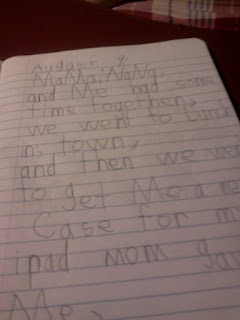 August, 9,
MaMa, NaNa,
and Me had some
time together,
we went to Lunch
in, town,
and then we we
to get Me a ne
Case for m
ipad mom gav
Me,